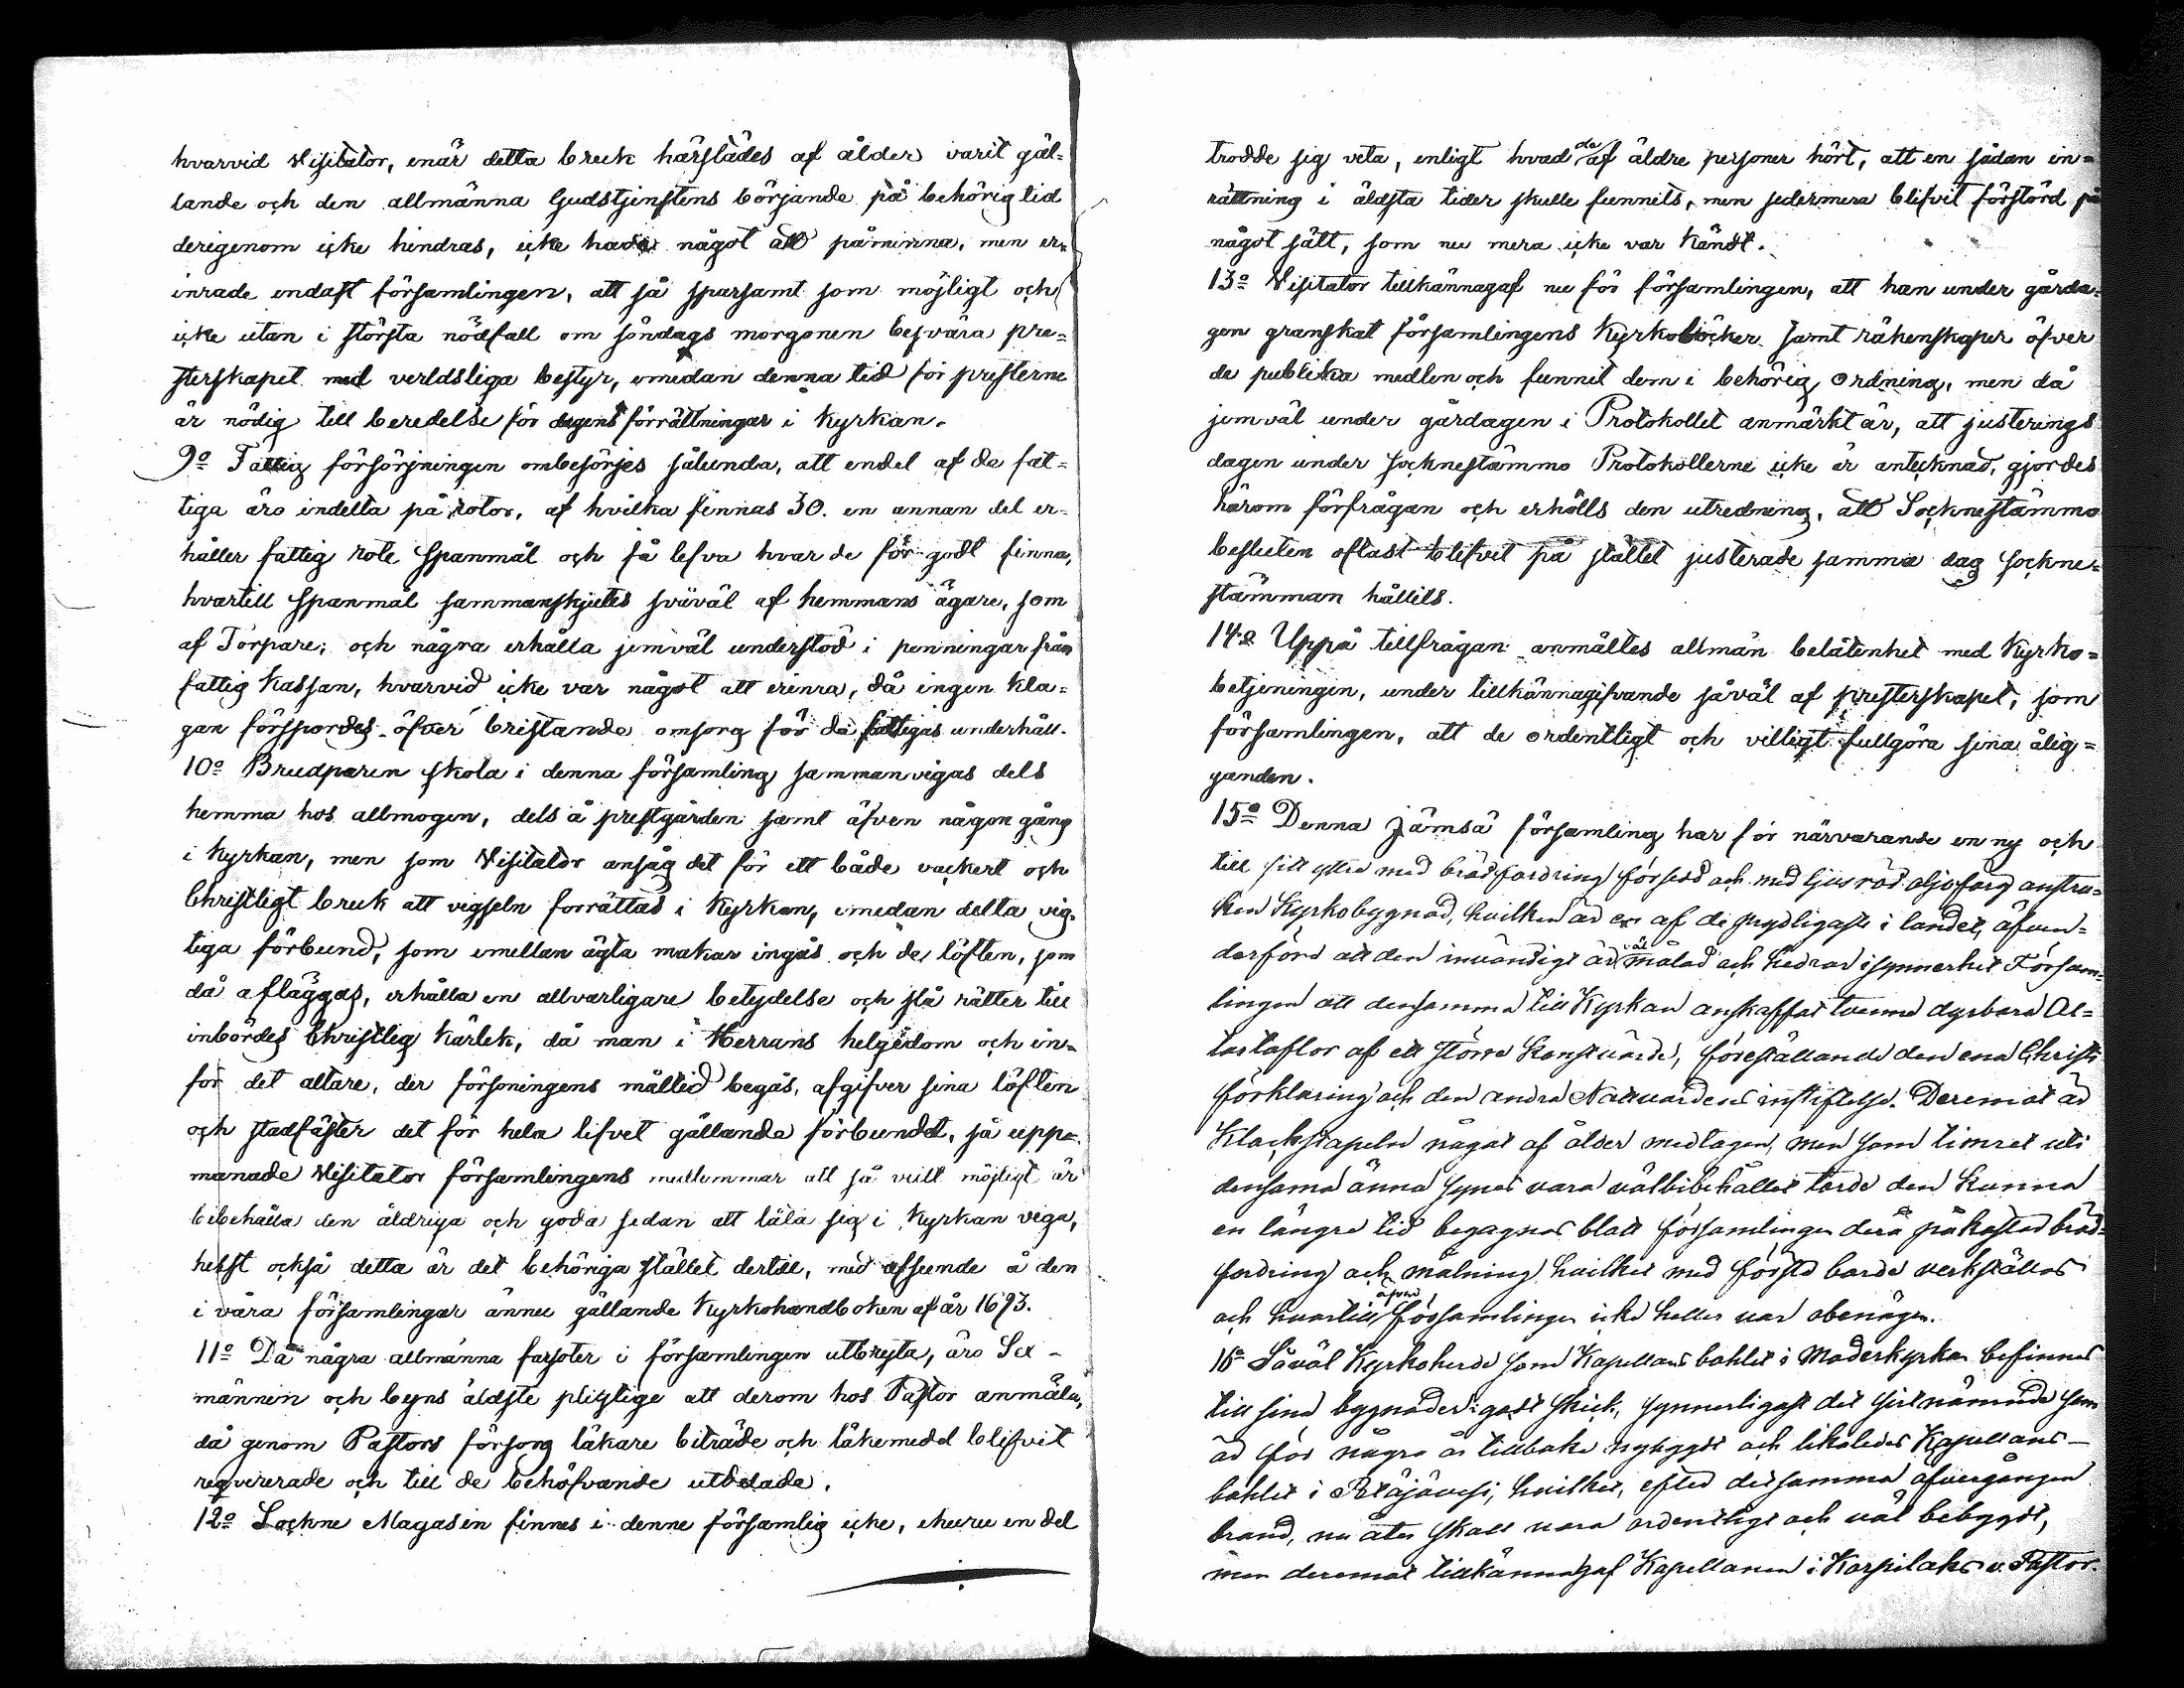 hvarvid Visitator, enär detta bruk härstädes af ålder varit gäl-
lande och den allmänna Gudstjenstens börjande på behörig tid
derigenom icke hindras, icke hade något att påminna, men er-
inrade endast församlingen, att så sparsamt som möjligt och
icke utan i största nödfall om söndags morgonen besvära pre-
sterskapet med verldsliga bestyr, emedan denna tid för presterne
är nödig till beredelse för dagens förrättningar i Kyrkan.
9o Fattig försörjningen ombesörjes sålunda, att endel af da fat-
tiga äro indelta på rotor, af hvilka finnas 30. en annan del er-
håller fattig rote Spanmål och få lefva hvar de för godt finna,
hvartill Spanmål sammanskjutes såväl af hemmans ägare, som
af Torpare; och några erhålla jemväl understöd i penningar från
fattig Kassan, hvarvid icke var något att erinra, då ingen kla-
gan försporddes öfver bristande omsorg för da fattigas underhåll.
10o Brudparen skola i denna församling sammanvigas dels
hemma hos allmogen, dels å prestgården samt äfven någon gång
i Kyrkan, men som Visitator ansåg det för ett både vackert och
Christligt bruk att vigseln forrättas i Kyrkan, emedan detta vig-
tiga förbund, som emellan ägta makar ingås och de löften, som
då afläggas, erhålla en allvarligare betydelse och slå rätter till
inbördes Christlig kärlek, då man i Herrans helgedom och in-
for det altare, der försoningens måltid begås, afgifver sina löften
och stadfäster det för hela lifvet gällande förbundet, så uppe-
manade Visitator församlingens medlemmar att så vidt möjligt är
bibehålla den åldriga och goda sedan att låta sig i Kyrkan viga,
helst också detta är det behöriga stället dertill, med afseende å den
i våra församlingar ännu gällande Kyrkohandboken af år 1693.
11o Då några allmänna farsoter i församlingen utbrysta, äro Sex-
männen och byns äldste pligtige att derom hos Pastor anmäla,
då genom Pastors försorg läkare biträde och läkemedel blifvit
reqvirerade och till de behöfvande utdelade.
12o Sockne Magasin finnes i denne församlig icke, ehuru en del
trodde sig veta, enligt hvad de af äldre personer hört, att en sådan in-
rättning i äldsta tider skulle funnits, men sedermera blifvit förstörd på
något sätt, som nu mera icke var kändt.
13o Visitator tillkännagaf nu för församlingen, att han under gårda-
gen granskat församlingens Kyrkoböcker samt räkenskaper öfver
de publika medlen och funnit dem i behörig ordning, men då
jemväl under gårdagen i Protokollet anmärkt är, att justerings
dagen under Socknestämmo Protokollerne icke är antecknad, gjordes
härom förfrågan och erhölls den utredning, att Socknestämmo
besluten oftast blifvit på stället justerade samma dag Sockne-
stämman hållits.
14o Uppå tillfrågan anmältes allmän belåtenhet med Kyrko-
betjeningen, under tillkännagifvande såväl af presterskapet, som
församlingen, att de ordentligt och villigt fullgöra sina ålig-
ganden.
15o Denna Jämsä församling har för närvarande en ny och
till sitt yttre med brädfordring försedd och med ljusröd oljofärg anstru-
ken Kyrkobyggnad, hvilken är en af de prydligaste i landet, äfven-
derföre att den invändigt är väl målad och hedrar i synnerhet Försam-
lingen att densamma till Kyrkan anskaffat tvenne dyrbara Al-
tartaflor af ett större konstvärde, föreställande den ena Christi
förklaring och den andra Nattvardens instiftelse. Deremot är
Klockstapeln något af ålder medtagen, men som timret uti
densamma ännu synes vara välbibehållet torde den kunna
en längre tid begagnas blott församlingen derå påkostar bräd-
fordring och målning hvilket med första borde verkställas
och hvartill äfven församlingen icke heller var obenägen.
16o Såväl Kyrkoherde som Kapellans bohlet i Moderkyrkan befinnes
till sina byggnader i godt skick, synnerligast det sistnämnde som
är för några år tillbaka nybyggdt och likaledes Kapellans-
bohlet i Petäjävesi, hvilket, efter detsamma öfvergången
brand, nu åter skall vara ordentligt och väl bebygdt,
men deremot tillkännagaf Kapellanen i Korpilaks v. Pastor.